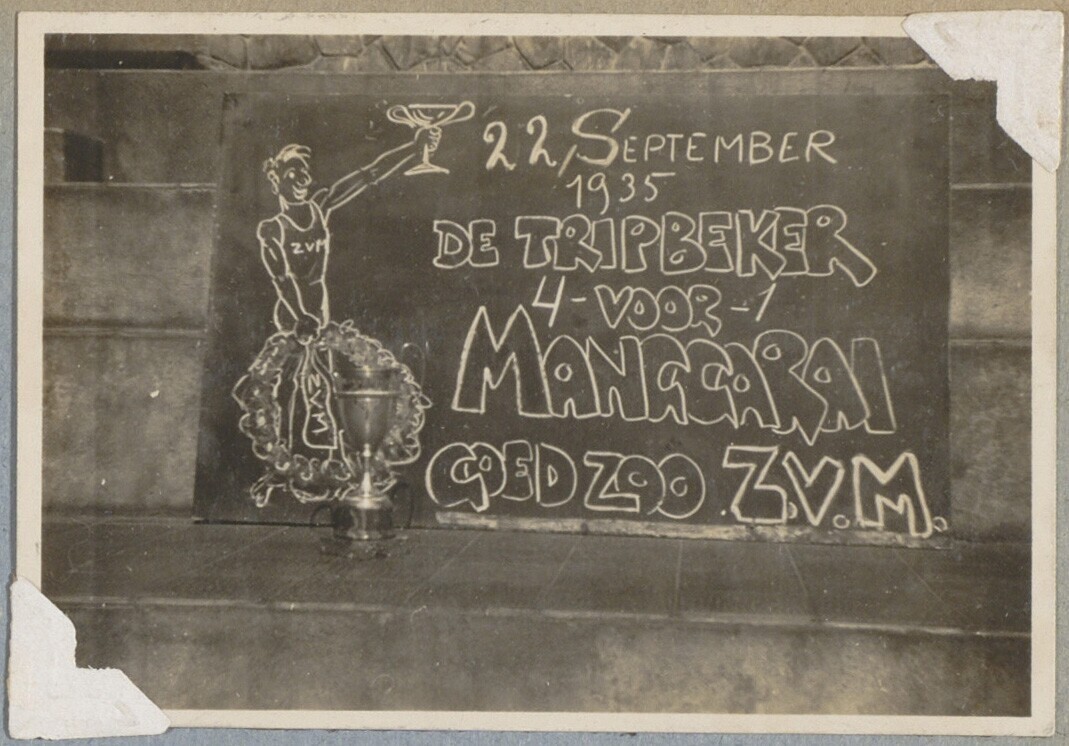 22 SEPTEMBER
1935
DE TRIPBEKER
4-VOOR-1
MANGGARAI
GOED ZOO Z.V.M.
ZVM
ZVM